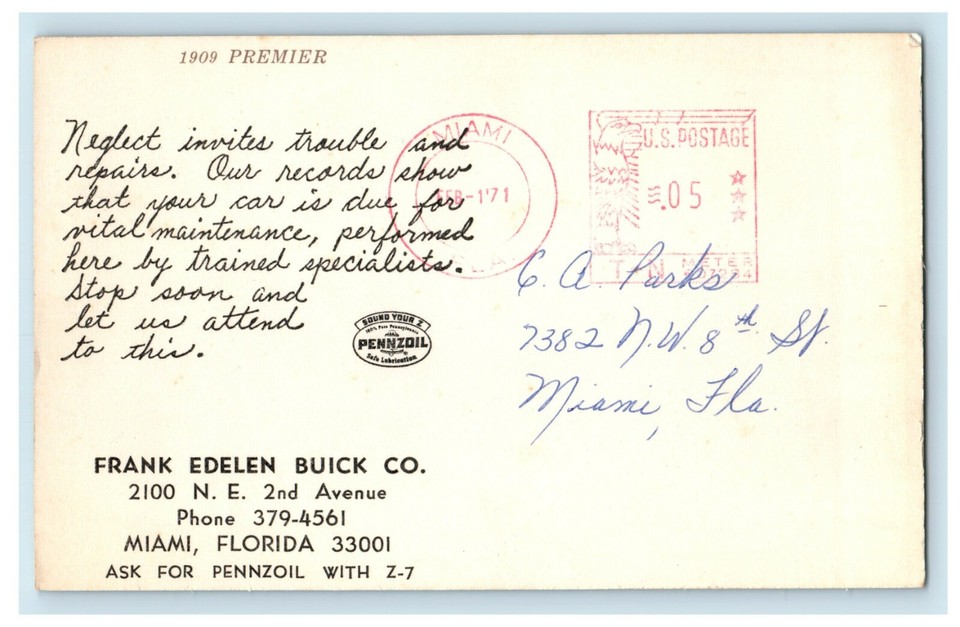 1909 PREMIER
Neglect invites trouble and
repairs. Our records show
that your car is due for
vital maintenance, performed
here by trained specialists.
Stop soon and
let us attend
to this.
SOUND YOUR Z
100% Pure Pennsylvania
PENNZOIL
Safe Lubrication
FRANK EDELEN BUICK CO.
2100 N. E. 2nd Avenue
Phone 379-4561
MIAMI, FLORIDA 33001
ASK FOR PENNZOIL WITH Z-7
MIAMI
FEB-1'71
U.S. POSTAGE
.05
METER
C. A. Parks
7382 N.W. 8th St.
Miami, Fla.